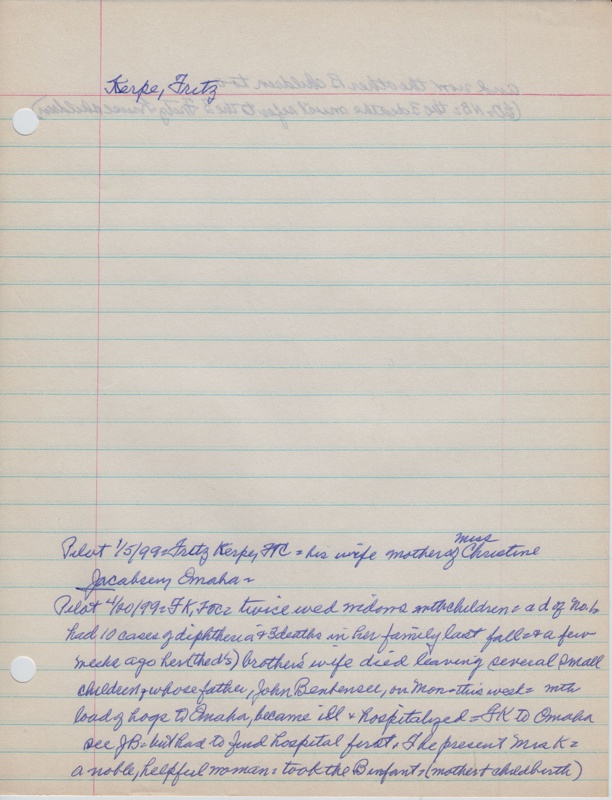 Kerpe, Fritz
Pilot 1/5/99 = Fritz Kerpe, FTC = his wife mother of miss Christine
Jacobsen, Omaha =
Pilot 4/20/99 = FK, FTC = twice wed widows with children = a d of No. 1
had 10 cases of diphtheria & 3 deaths in her family last fall = & a few
weeks ago her (the d's) brother's wife died leaving several small
children, whose father, John on Mon = this week = with
load of hogs to Omaha, became ill & hospitalized = FK to Omaha
see JB = but had to find hospital first. The present Mrs K =
a noble, helpful woman = took the B infant = (mother & childbirth)